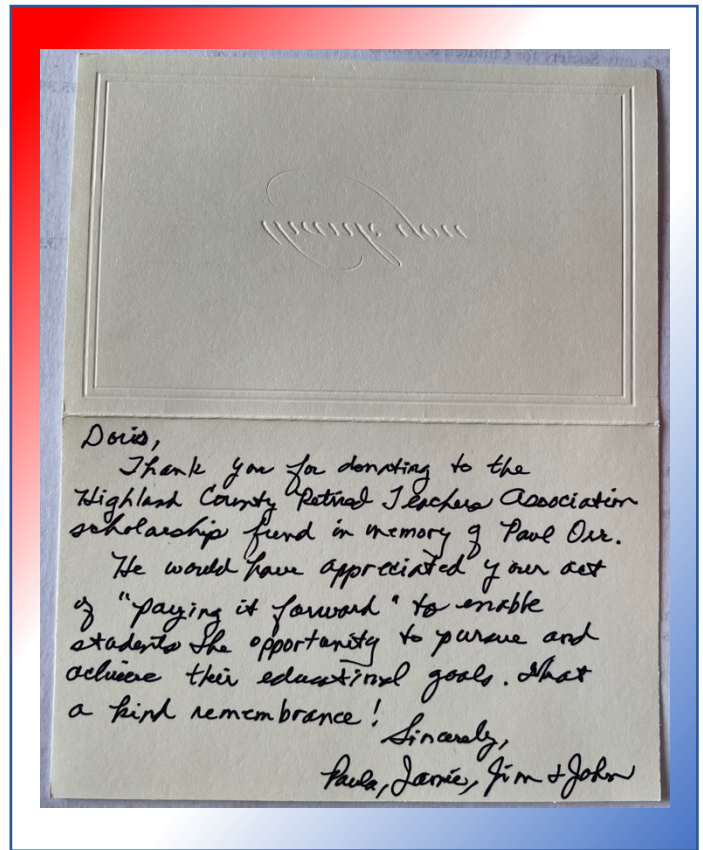 thank you
Doris,
Thank you for donating to the
Highland County Retired Teachers Association
scholarship fund in memory of Paul Orr.
He would have appreciated your act
of "paying it forward" to enable
students the opportunity to pursue and
achieve their educational goals. What
a kind remembrance!
Sincerely,
Paula, Jamie, Jim & John